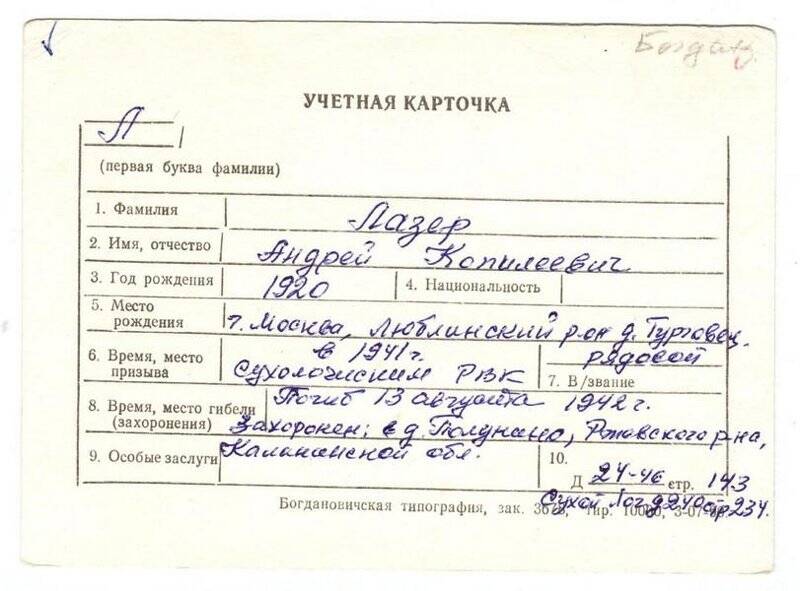 Богдан.
УЧЕТНАЯ КАРТОЧКА
Л
(первая буква фамилии)
1. Фамилия Лазер
2. Имя, отчество Андрей Копилеевич
3. Год рождения 1920 4. Национальность
5. Место рождения г. Москва, Люблинский р-он д.
6. Время, место призыва в 1941 г. Сухоложским РВК
7. В/звание рядовой
8. Время, место гибели (захоронения) Погиб 13 августа 1942 г.
Захоронен: в д. Полунино, Ржевского р-на,
Калининской обл.
9. Особые заслуги
10. Д 24-46 стр. 143
Сухой Лог д 240 стр 234.
Богдановичская типография, зак. тир.